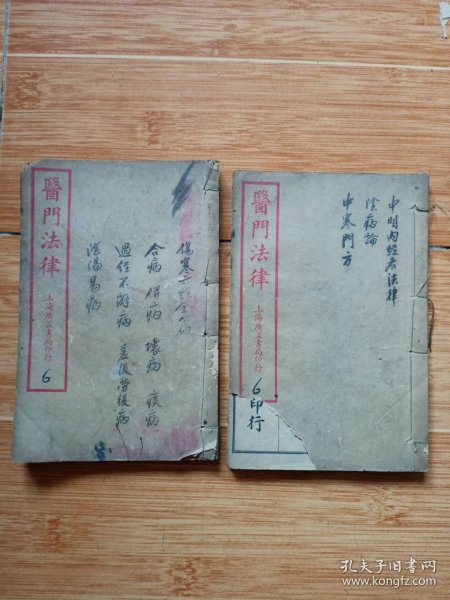 醫門法律
上海廣益書局印行
6
傷寒
合病 併病 壞病 痰病
過經不解病 差後勞復病
陰陽易病
醫門法律
上海廣益書局印行
6印行
申明內經法律
陰病論
中寒門方
孔夫子旧书网
www.kongfz.com